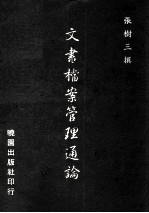 張樹三撰
文書檔案管理通論
曉園出版社印行